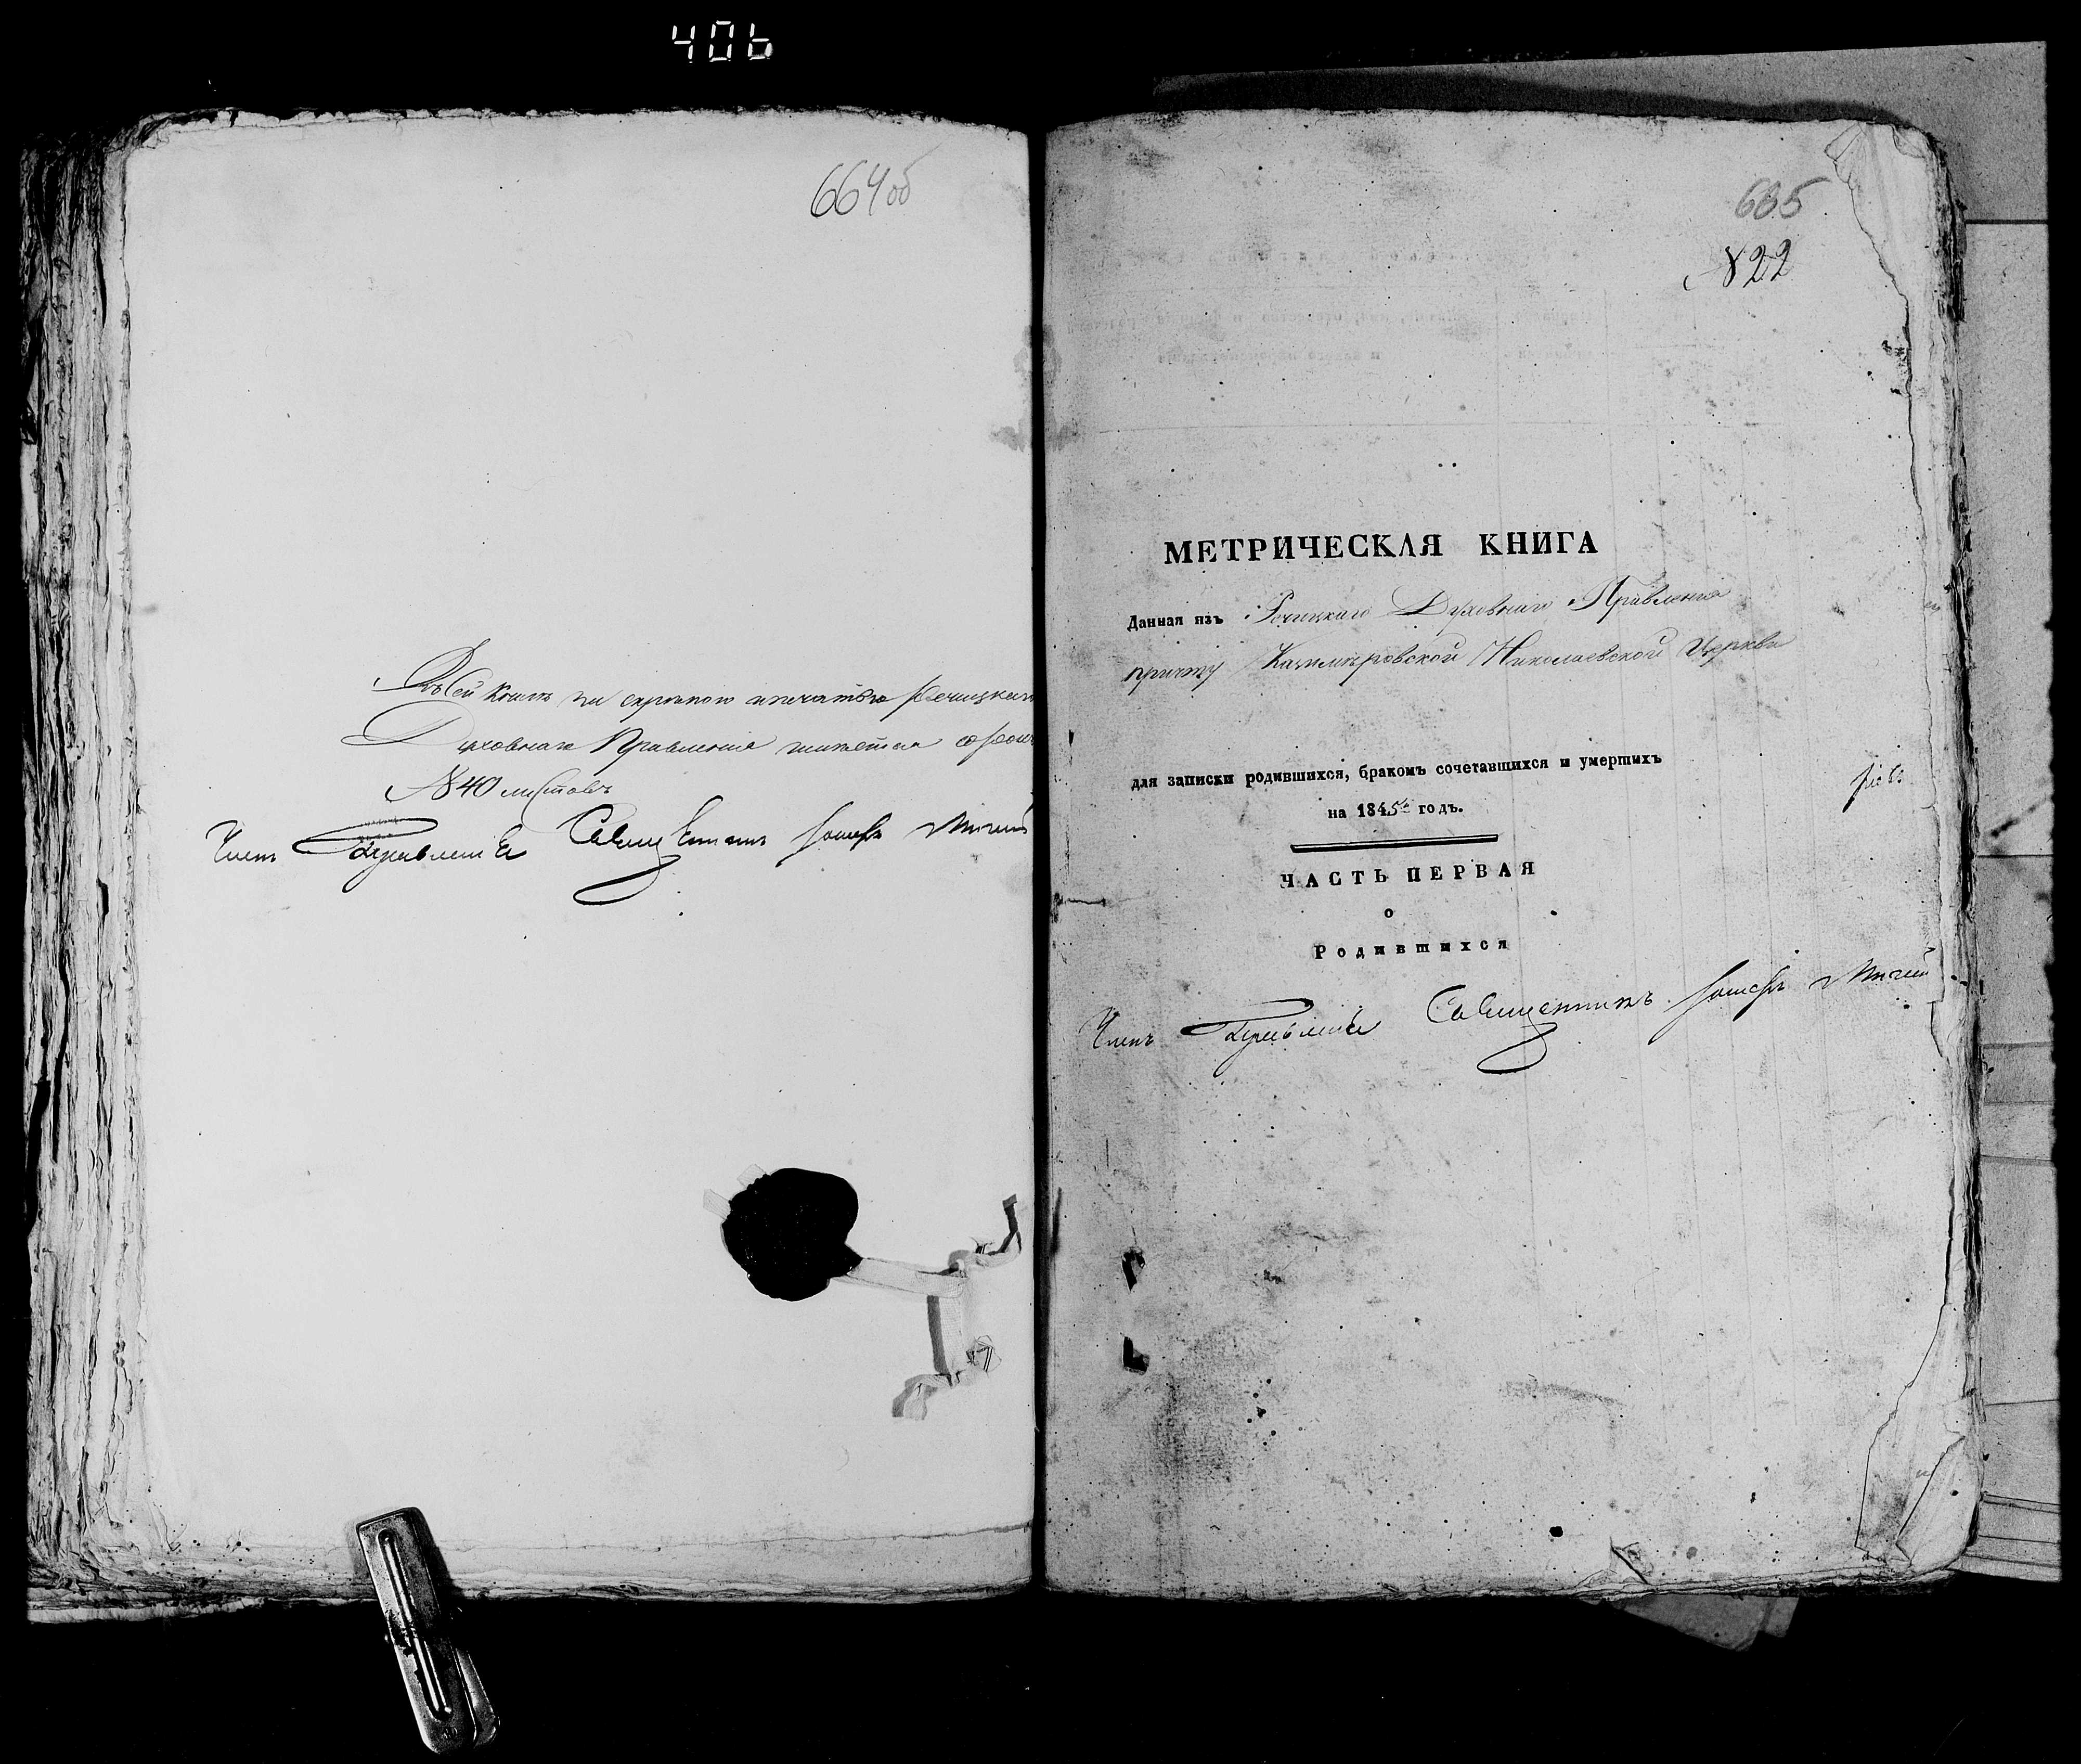 406
664 об
Въ сей книгѣ за скрѣпою и печатью Речицкаго
Духовнаго Правленія имѣется сорокъ
№ 40 листовъ
Членъ Правленія Священникъ Іосифъ
665
№ 22
МЕТРИЧЕСКАЯ КНИГА
Данная изъ Речицкаго Духовнаго Правленія
причту Казимѣровской Николаевской Церкви
для записки родившихся, бракомъ сочетавшихся и умершихъ
на 1845й годъ.
ЧАСТЬ ПЕРВАЯ
о
Родившихся
Членъ Правленія Священникъ Іосифъ